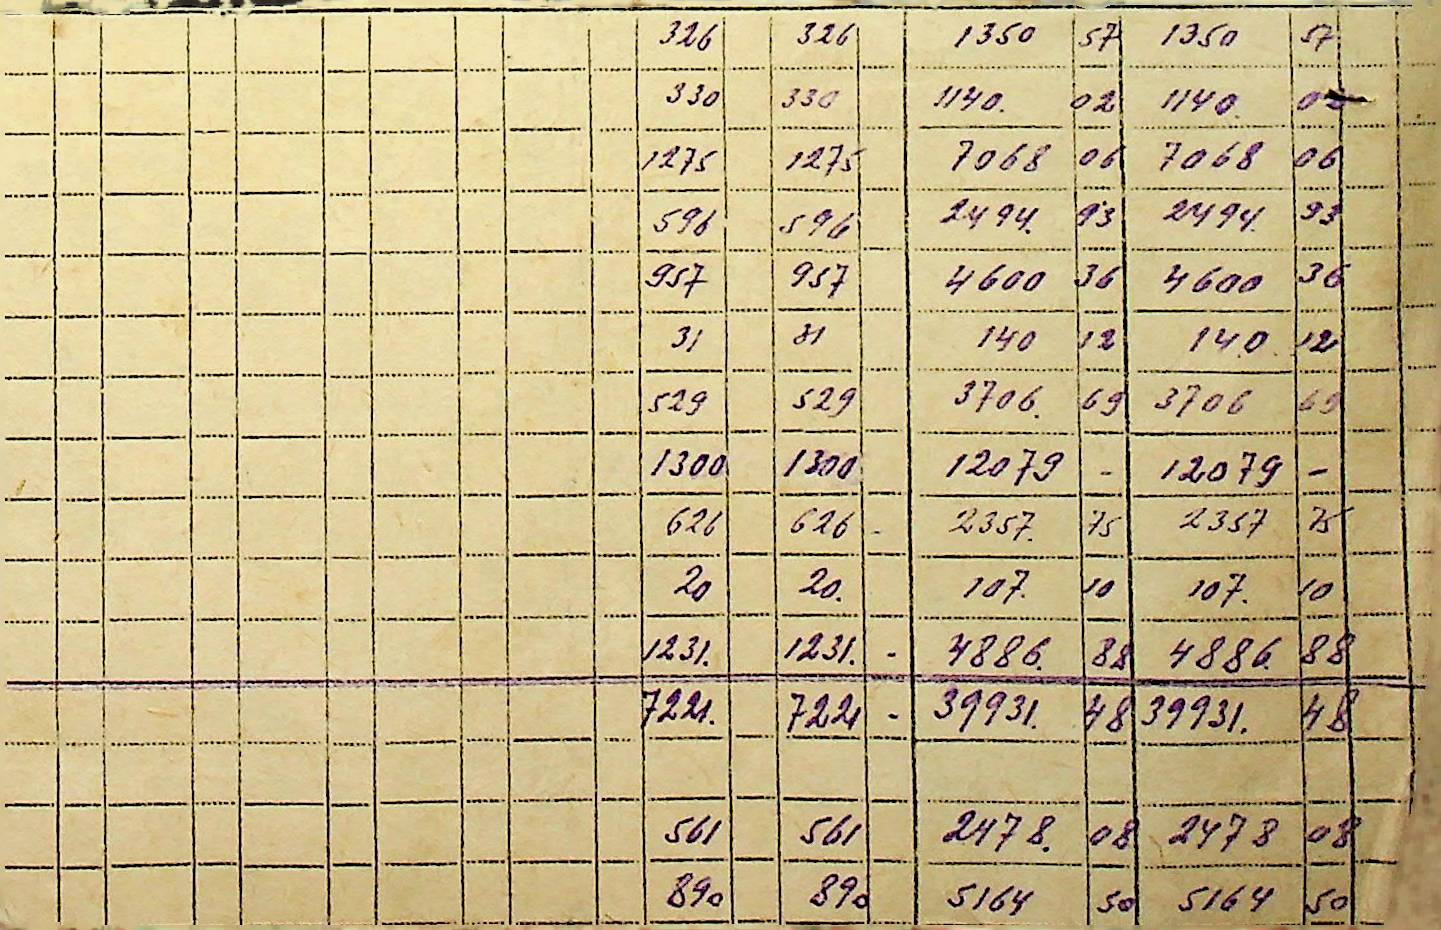 326 326 1350 57 1350 57
330 330 1140. 02 1140. 02
1275 1275 7068 06 7068 06
596 596 2494. 93 2494. 93
957 957 4600 36 4600 36
31 31 140 12 140 12
529 529 3706. 69 3706 69
1300 1300 12079 - 12079 -
626 626 - 2357. 75 2357 75
20 20. 107. 10 107. 10
1231. 1231. - 4886. 88 4886 88
7221. 7221 - 39931. 48 39931. 48
561 561 2478. 08 2478 08
890 890 5164 50 5164 50